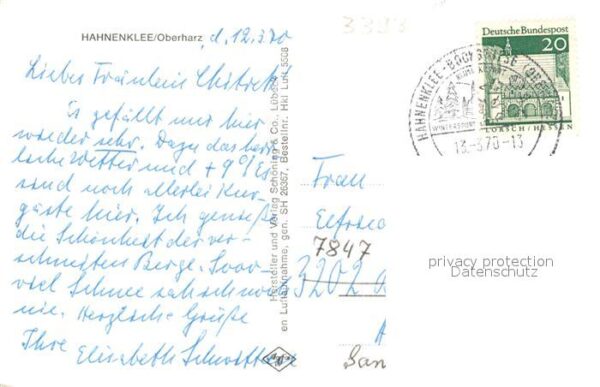 HAHNENKLEE/Oberharz, d. 12.3.70
Liebes Fräulein
Es gefällt mir hier
wieder sehr. Dazu das herr-
liche Wetter und +9° Es
sind noch allerlei Kur-
gäste hier. Ich genieße
die Schönheit der ver-
schneiten Berge. Soo
viel Schnee sah ich noch
nie. Herzliche Grüße
Ihre Elisabeth
Hersteller und Verlag Schöning & Co., Lübeck
en Luftaufnahme, gen. SH 26367, Bestellnr. Hkl Luft 5508
3393
Deutsche Bundespost
20
LORSCH/HESSEN
HAHNENKLEE-BOCKSWIESE
WINTERSPORT
13.-3.70-13
Frau
7847
3202
privacy protection
Datenschutz